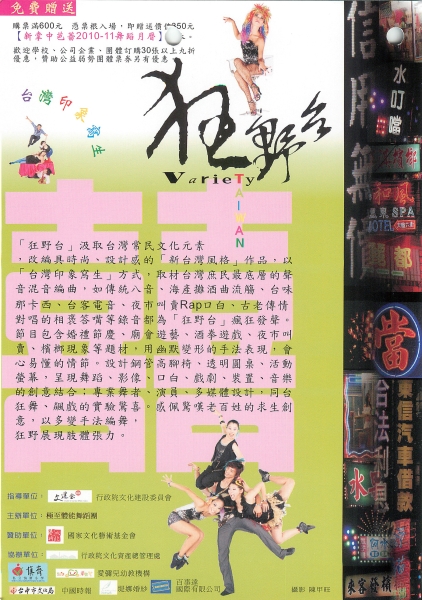 免費贈送
購票滿600元 憑票根入場，即贈送價值350元
【新拿中芭蕾2010-11舞蹈月曆】
歡迎學校、公司企業、團體訂購30張以上九折
優惠，贊助公益弱勢團體票券另有優惠
台灣印象寫生
狂野台
Variety
TAIWAN
「狂野台」汲取台灣常民文化元素
，改編具時尚、設計感的「新台灣風格」作品，以
「台灣印象寫生」方式，取材台灣庶民最底層的聲
音混音編曲，如傳統八音、海產攤酒曲流觴、台味
那卡西、台客電音、夜市叫賣Rap口白、古老傳情
對唱的相褒答嘴等錄音都為「狂野台」瘋狂發聲。
節目包含婚禮節慶、廟會遊藝、酒拳遊戲、夜市叫
賣、檳榔現象等題材，用幽默變形的手法表現，會
心易懂的情節。設計鋼管高腳椅、透明圓桌、活動
螢幕，呈現舞蹈、影像、口白、戲劇、裝置、音樂
的創意結合；專業舞者、演員、多媒體設計，同台
狂舞、飆戲的實驗驚喜。感佩驚嘆老百姓的求生創
意，以多變手法編舞，
狂野展現肢體張力。
指導單位：
文建會
行政院文化建設委員會
主辦單位：極至體能舞蹈團
贊助單位：
國家文化藝術基金會
協辦單位：
行政院文化資產總管理處
愛彌兒幼教機構
台中市文化局
中國時報
堤娜婚紗
百事達
國際有限公司
攝影 陳甲旺
信用無價
水叮噹
和風
溫泉SPA
HOTEL
都
當
合法利息
東信汽車借款
來客檳榔